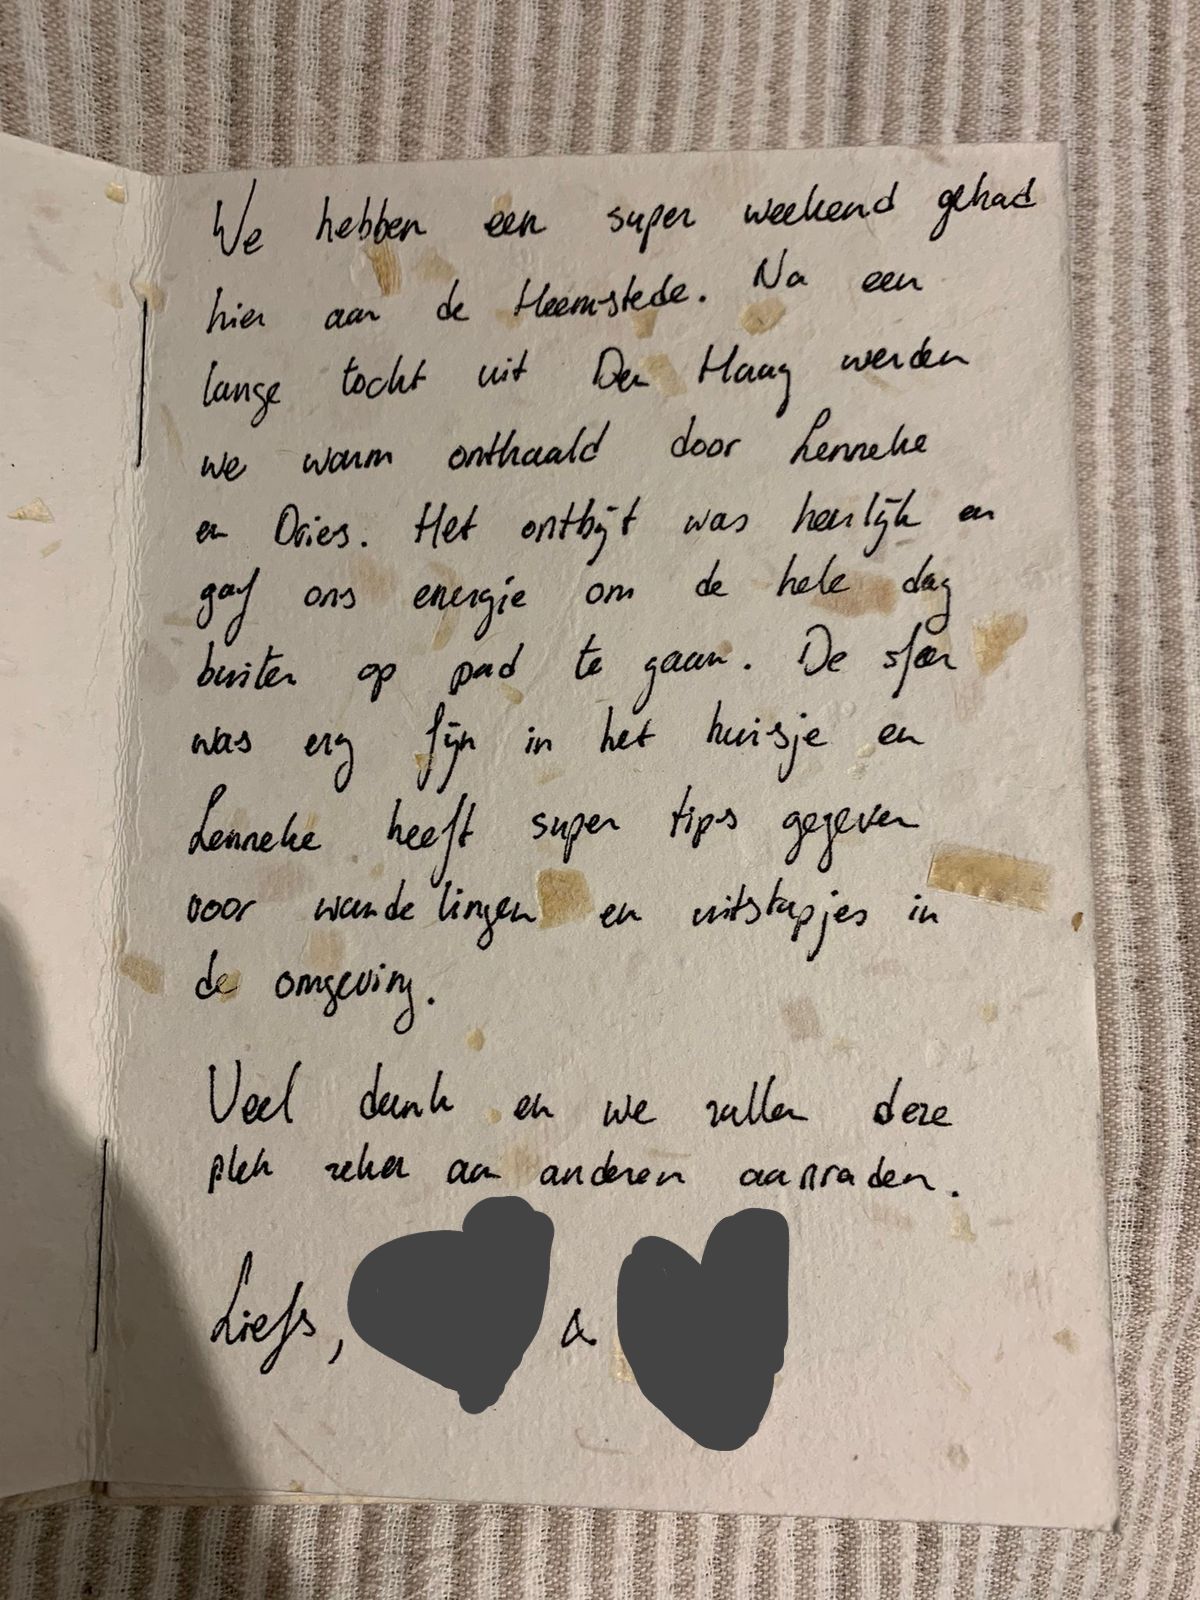 We hebben een super weekend gehad
hier aan de Heemstede. Na een
lange tocht uit Den Haag werden
we warm onthaald door Lenneke
en Dries. Het ontbijt was heerlijk en
gaf ons energie om de hele dag
buiten op pad te gaan. De sfeer
was erg fijn in het huisje en
Lenneke heeft super tips gegeven
voor wandelingen en uitstapjes in
de omgeving.
Veel dank en we zullen deze
plek zeker aan anderen aanraden.
Liefs, &